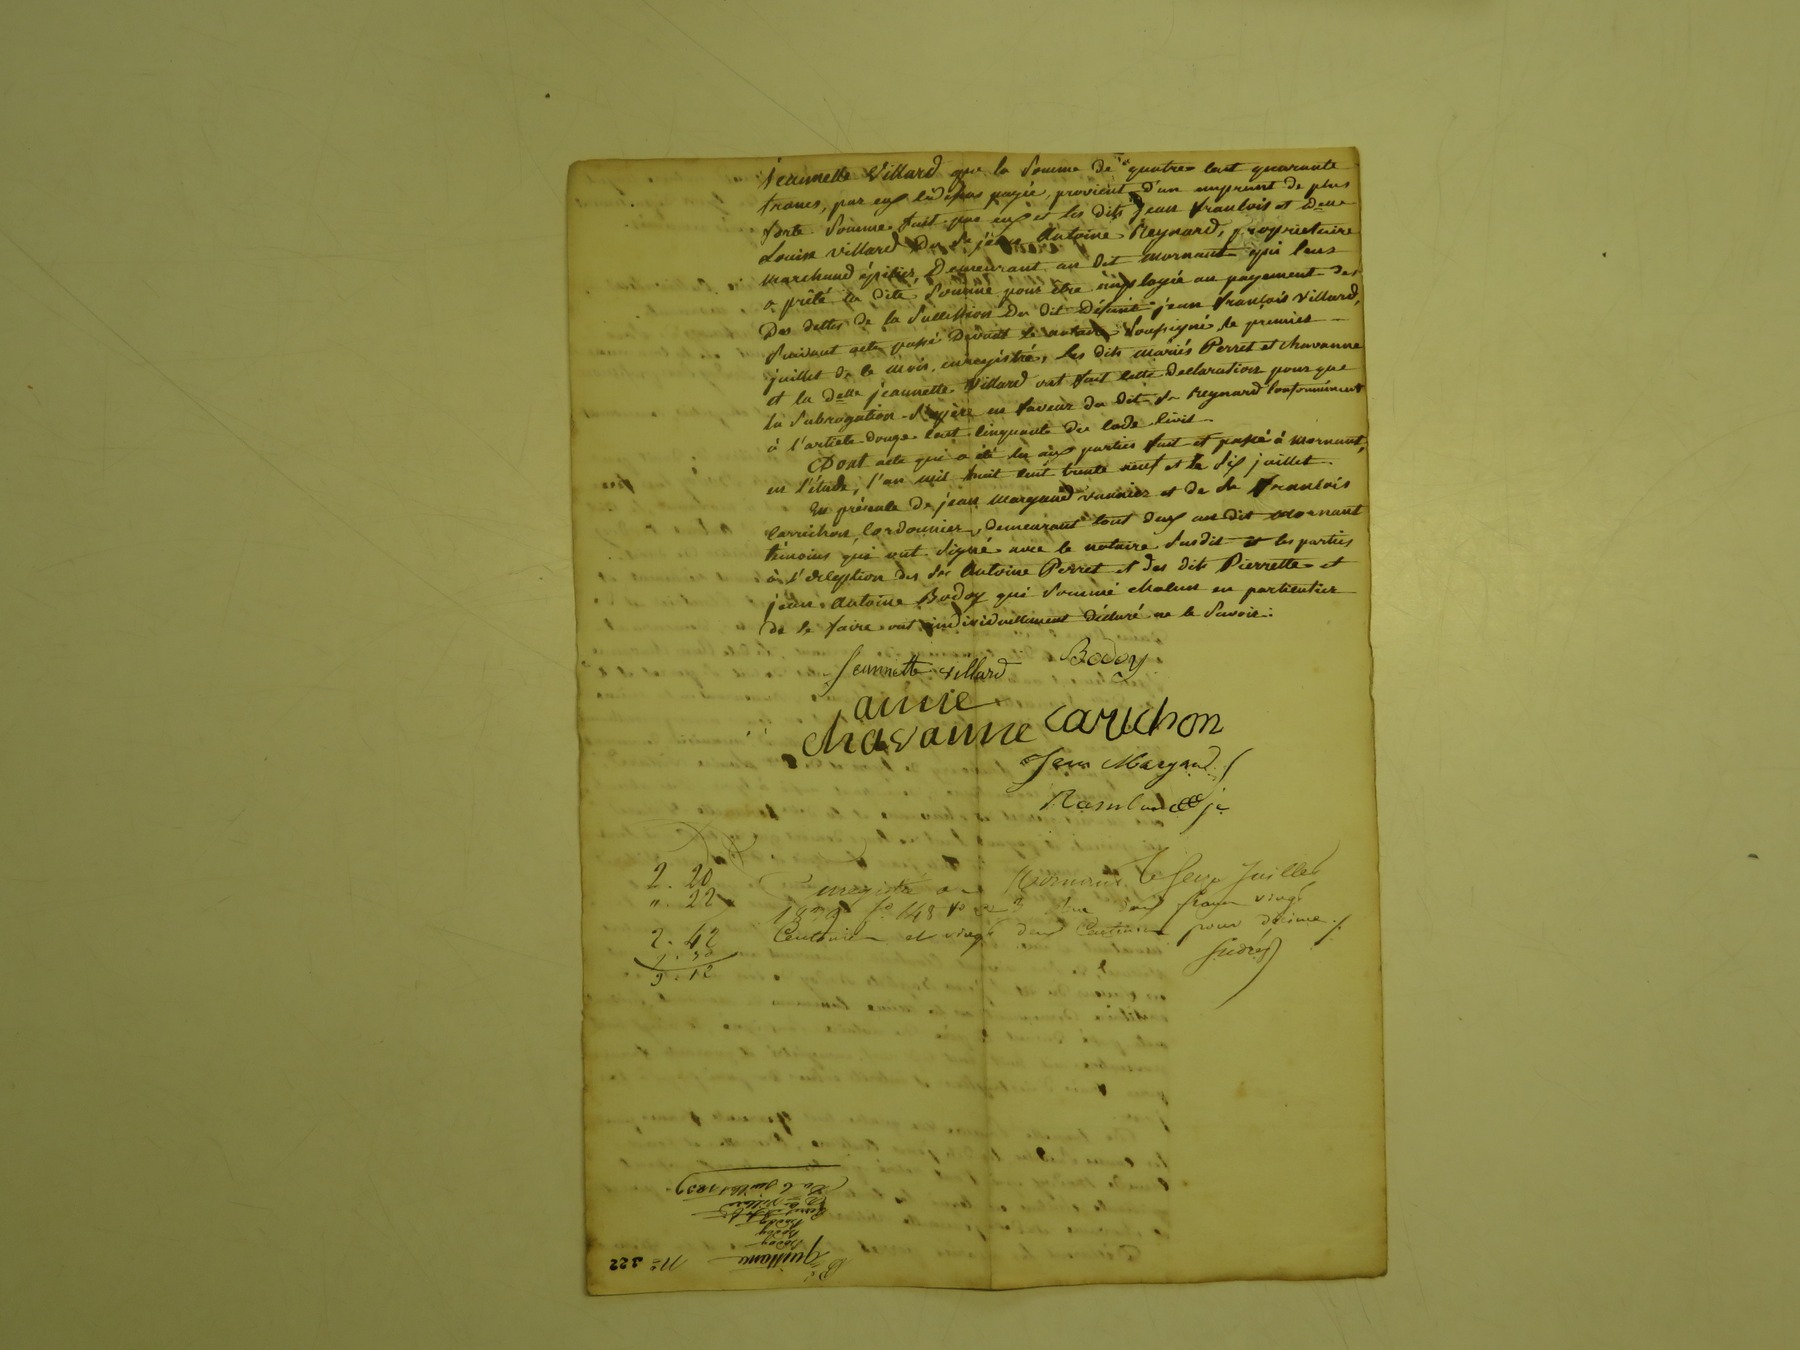 jeannette Villard que la Somme de quatre cent quarante
francs, par eux ci dessus payée, provient d'un emprunt de plus
forte Somme fait par eux et les dits jean françois et Delle
Louise Villard du Sr jean Antoine Reynard, propriétaire
marchand épicier, Demeurant au dit mornant qui leur
a prêté la dite Somme pour être employée au payement des
Des dettes de la Succession Du dit Défunt jean françois Villard,
Suivant acte passé Devant le notaire Soussigné le premier
juillet de ce mois, enregistré, les dits mariés Perret et chavanne
et la Delle jeannette Villard ont fait cette déclaration pour que
la Subrogation S'opère en faveur du dit Sr Reynard Conformément
à l'article douze cent cinquante du Code Civil.
Dont acte qui a été lu aux parties fait et passé à Mornant,
en l'étude, l'an mil huit cent trente neuf et le Six juillet.
En présence de jean Margand vannier et de Sr françois
Carrichon, Cordonnier, demeurant tout deux au dit Mornant
témoins qui ont Signé avec le notaire Susdit et les parties
à l'exception des Srs Antoine Perret et des dits Pierrette et
jean Antoine Bodoy qui Sommé chacun en particulier
de le faire ont individuellement déclaré ne le Savoir.
Jeannette villard Bodoy
anne
chavanne carichon
Jean Margand
2. 20 Enregistré a Mornant le Seize Juillet
". 22 1839 fo 148 vo deux francs vingt
2. 42 Centimes et vingt deux Centimes pour décime
Du 6 juillet 1839
Villard
Bodoy
Bodoy
quittance
No 322